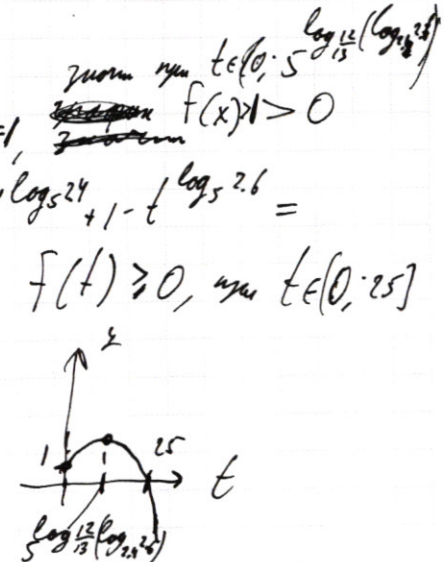 значит при t∈(0; 5^{log_{12/13}(log_{2,4} 2,6)})
f(x)>1>0
log₅24 + 1 - t^{log₅ 2.6} =
f(t) ≥ 0, при t∈(0; 25]
y
1
25
t
5^{log_{12/13}(log_{2,4} 2,6)}